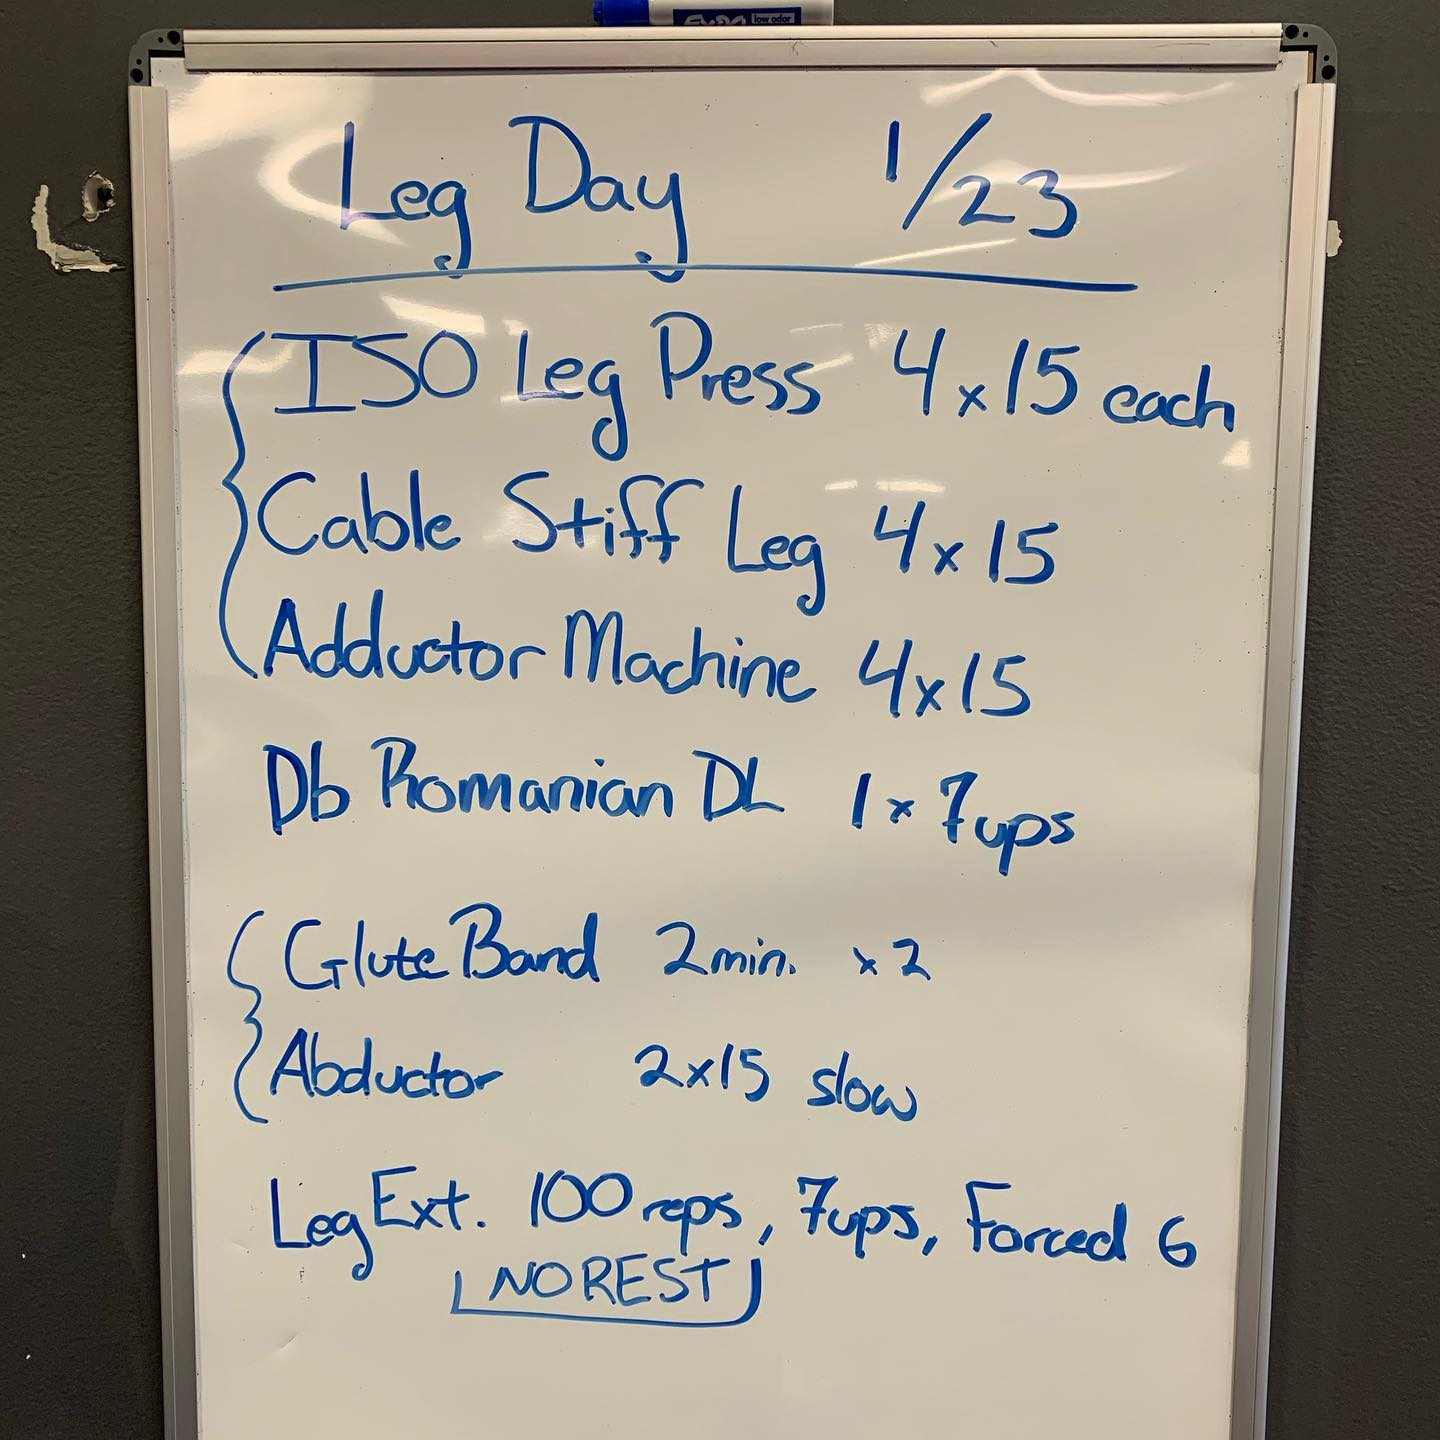 EXPO low odor
Leg Day 1/23
ISO Leg Press 4x15 each
Cable Stiff Leg 4x15
Adductor Machine 4x15
Db Romanian DL 1x7ups
Glute Band 2min. x2
Abductor 2x15 slow
Leg Ext. 100 reps, 7ups, Forced 6
NO REST